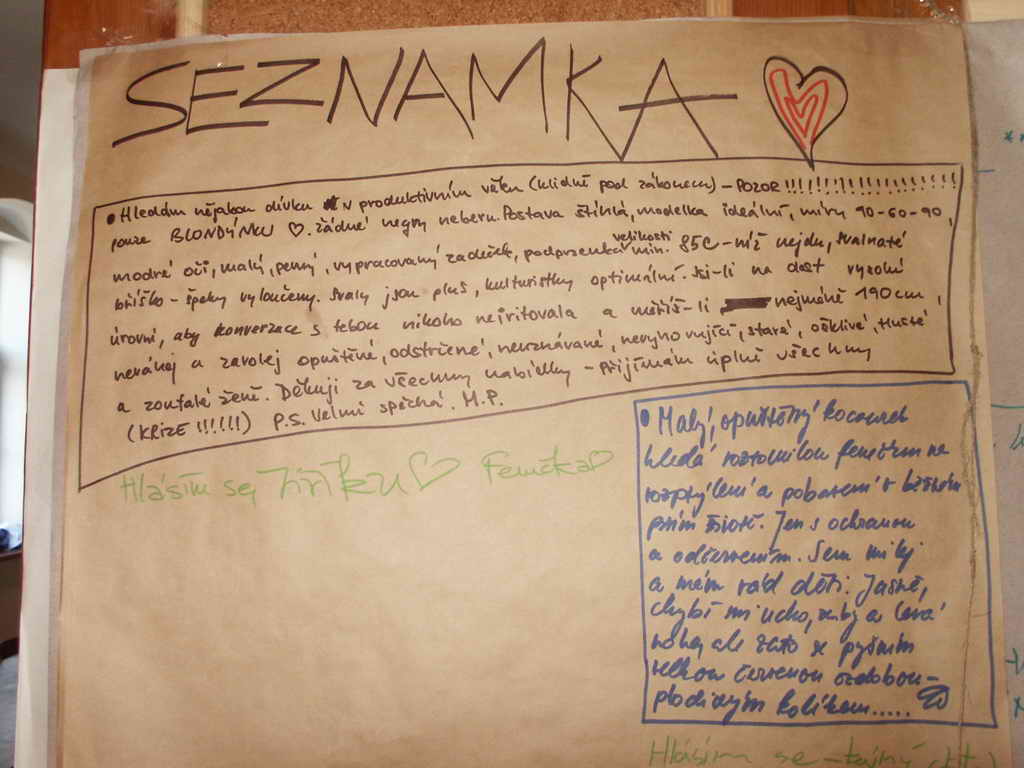 SEZNAMKA
• Hledám nějakou dívku v produktivním věku (klidně pod zákonem) - POZOR !!!!!!!!!!!!!!!!!!
pouze BLONDÝNKU ♡. žádné negry neberu. Postava štíhlá, modelka ideální, míry 90-60-90,
modré oči, malý, pevný, vypracovaný zadeček, podprsenka velikosti min. 85C - níž nejdu, svalnaté
bříško - špeky vyloučeny. Svaly jsou plus, kulturistky optimální. Jsi-li na dost vysoké
úrovni, aby konverzace s tebou nikoho neiritovala a měříš-li nejméně 190cm,
neváhej a zavolej opuštěné, odstrčené, neuznávané, nevyhovující, staré, ošklivé, tlusté
a zoufalé ženě. Děkuji za všechny nabídky - Přijímám úplně všechny
(KRIZE !!!!!!) P.S. Velmi spěchá. M.P.
Hlásím se, Jiříku ♡ Fenečka ♡
• Malý, opuštěný kocourek
hledá roztomilou fenečku na
rozptýlení a pobavení v
psím životě. Jen s ochranou
a odčervením. Jsem milý
a mám rád děti. Jasně,
chybí mi ucho, zuby a levá
noha, ale zato se pyšním
velkou červenou ozdobou -
plodícím kolíkem.....
Hlásím se - tajný